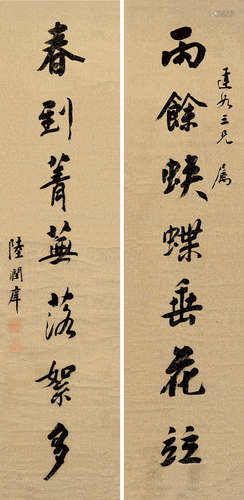 三兄 屬
雨餘蛺蝶垂花
春到菁蕪落絮多
陸潤庠